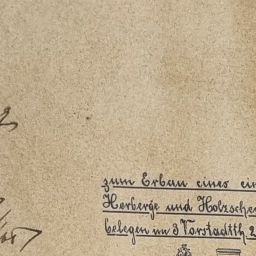 zum Erbau eines ein
Herberge und Holzsche
belegen im 3 Vorstadtth. 2